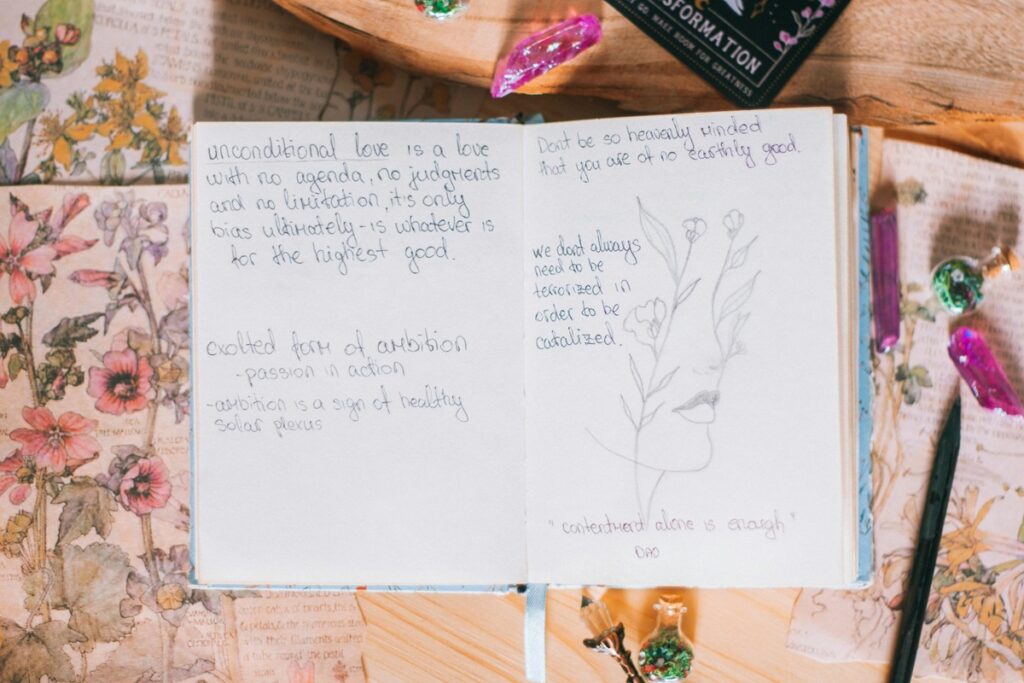 unconditional love is a love
with no agenda, no judgments
and no limitation, it's only
bias ultimately - is whatever is
for the highest good.
exolted form of ambition
- passion in action
- ambition is a sign of healthy
solar plexus
Dont be so heavenly minded
that you are of no earthly good.
we dont always
need to be
terrorized in
order to be
catalized.
"contentment alone is enough"
DAO
SFORMATION
GO. MAKE ROOM FOR GREATNESS